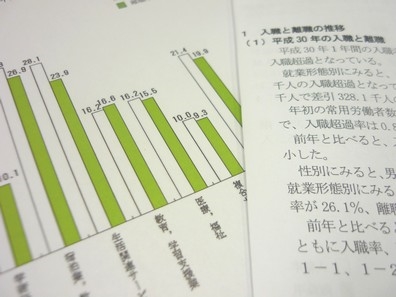 26.9
28.1
23.9
16.2
16.6
16.2
15.5
10.0
9.3
21.4
19.9
10.1
宿泊業，
生活関連サービ
教育，学習支援業
医療，福祉
複合
1 入職と離職の推移
(1) 平成 30 年の入職と離職
平成 30 年 1 年間の入職
入職超過となっている。
就業形態別にみると、
千人の入職超過となって
千人で差引 328.1 千人の
年初の常用労働者数
で、入職超過率は 0.8
前年と比べると、
小した。
性別にみると、男
就業形態別にみる
率が 26.1%、離職
前年と比べる
ともに入職率、
1－1、1－2